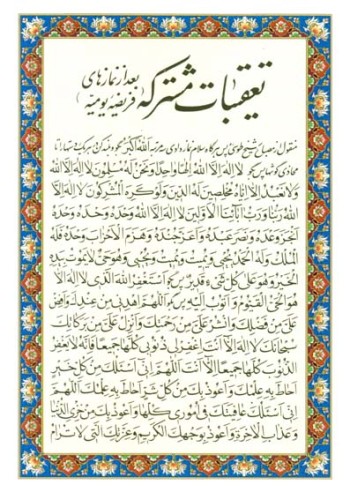 تعقیبات مشترکه
بعد از نمازهای
(فریضه یومیه)
منقول از مصباح شیخ طوسی پس هرگاه سلام نماز دادی سه مرتبه اللهُ اَکبَر بگو و بلند کن هر یک دستها را تا
محاذی گوشها پس بگو لا اِلهَ اِلَّا اللهُ اِلهاً واحِداً وَنَحنُ لَهُ مُسلِمُونَ لا اِلهَ اِلَّا اللهُ
وَلا نَعبُدُ اِلّا اِیّاهُ مُخلِصینَ لَهُ الدّینَ وَلَو کَرِهَ المُشرِکُونَ لا اِلهَ اِلَّا
اللهُ رَبُّنا وَرَبُّ آبائِنَا الاَوَّلینَ لا اِلهَ اِلَّا اللهُ وَحدَهُ وَحدَهُ وَحدَهُ
اَنجَزَ وَعدَهُ وَنَصَرَ عَبدَهُ وَاَعَزَّ جُندَهُ وَهَزَمَ الاَحزابَ وَحدَهُ فَلَهُ
المُلکُ وَلَهُ الحَمدُ یُحیی وَیُمیتُ وَیُمیتُ وَیُحیی وَهُوَ حَیٌّ لا یَمُوتُ بِیَدِهِ
الخَیرُ وَهُوَ عَلی کُلِّ شَیءٍ قَدیرٌ پس بگو اَستَغفِرُ اللهَ الَّذی لا اِلهَ اِلّا
هُوَ الحَیُّ القَیُّومُ وَاَتُوبُ اِلَیهِ پس بگو اَللّهُمَّ اهدِنی مِن عِندِکَ وَاَفِض
عَلَیَّ مِن فَضلِکَ وَانشُر عَلَیَّ مِن رَحمَتِکَ وَاَنزِل عَلَیَّ مِن بَرَکاتِکَ
سُبحانَکَ لا اِلهَ اِلّا اَنتَ اغفِر لی ذُنُوبی کُلَّها جَمیعاً فَاِنَّهُ لا یَغفِرُ
الذُّنُوبَ کُلَّها جَمیعاً اِلّا اَنتَ اَللّهُمَّ اِنّی اَسئَلُکَ مِن کُلِّ خَیرٍ
اَحاطَ بِهِ عِلمُکَ وَاَعُوذُ بِکَ مِن کُلِّ شَرٍّ اَحاطَ بِهِ عِلمُکَ اَللّهُمَّ
اِنّی اَسئَلُکَ عافِیَتَکَ فی اُمُوری کُلِّها وَاَعُوذُ بِکَ مِن خِزیِ الدُّنیا
وَعَذابِ الاخِرَةِ وَاَعُوذُ بِوَجهِکَ الکَریمِ وَعِزَّتِکَ الَّتی لا تُرامُ